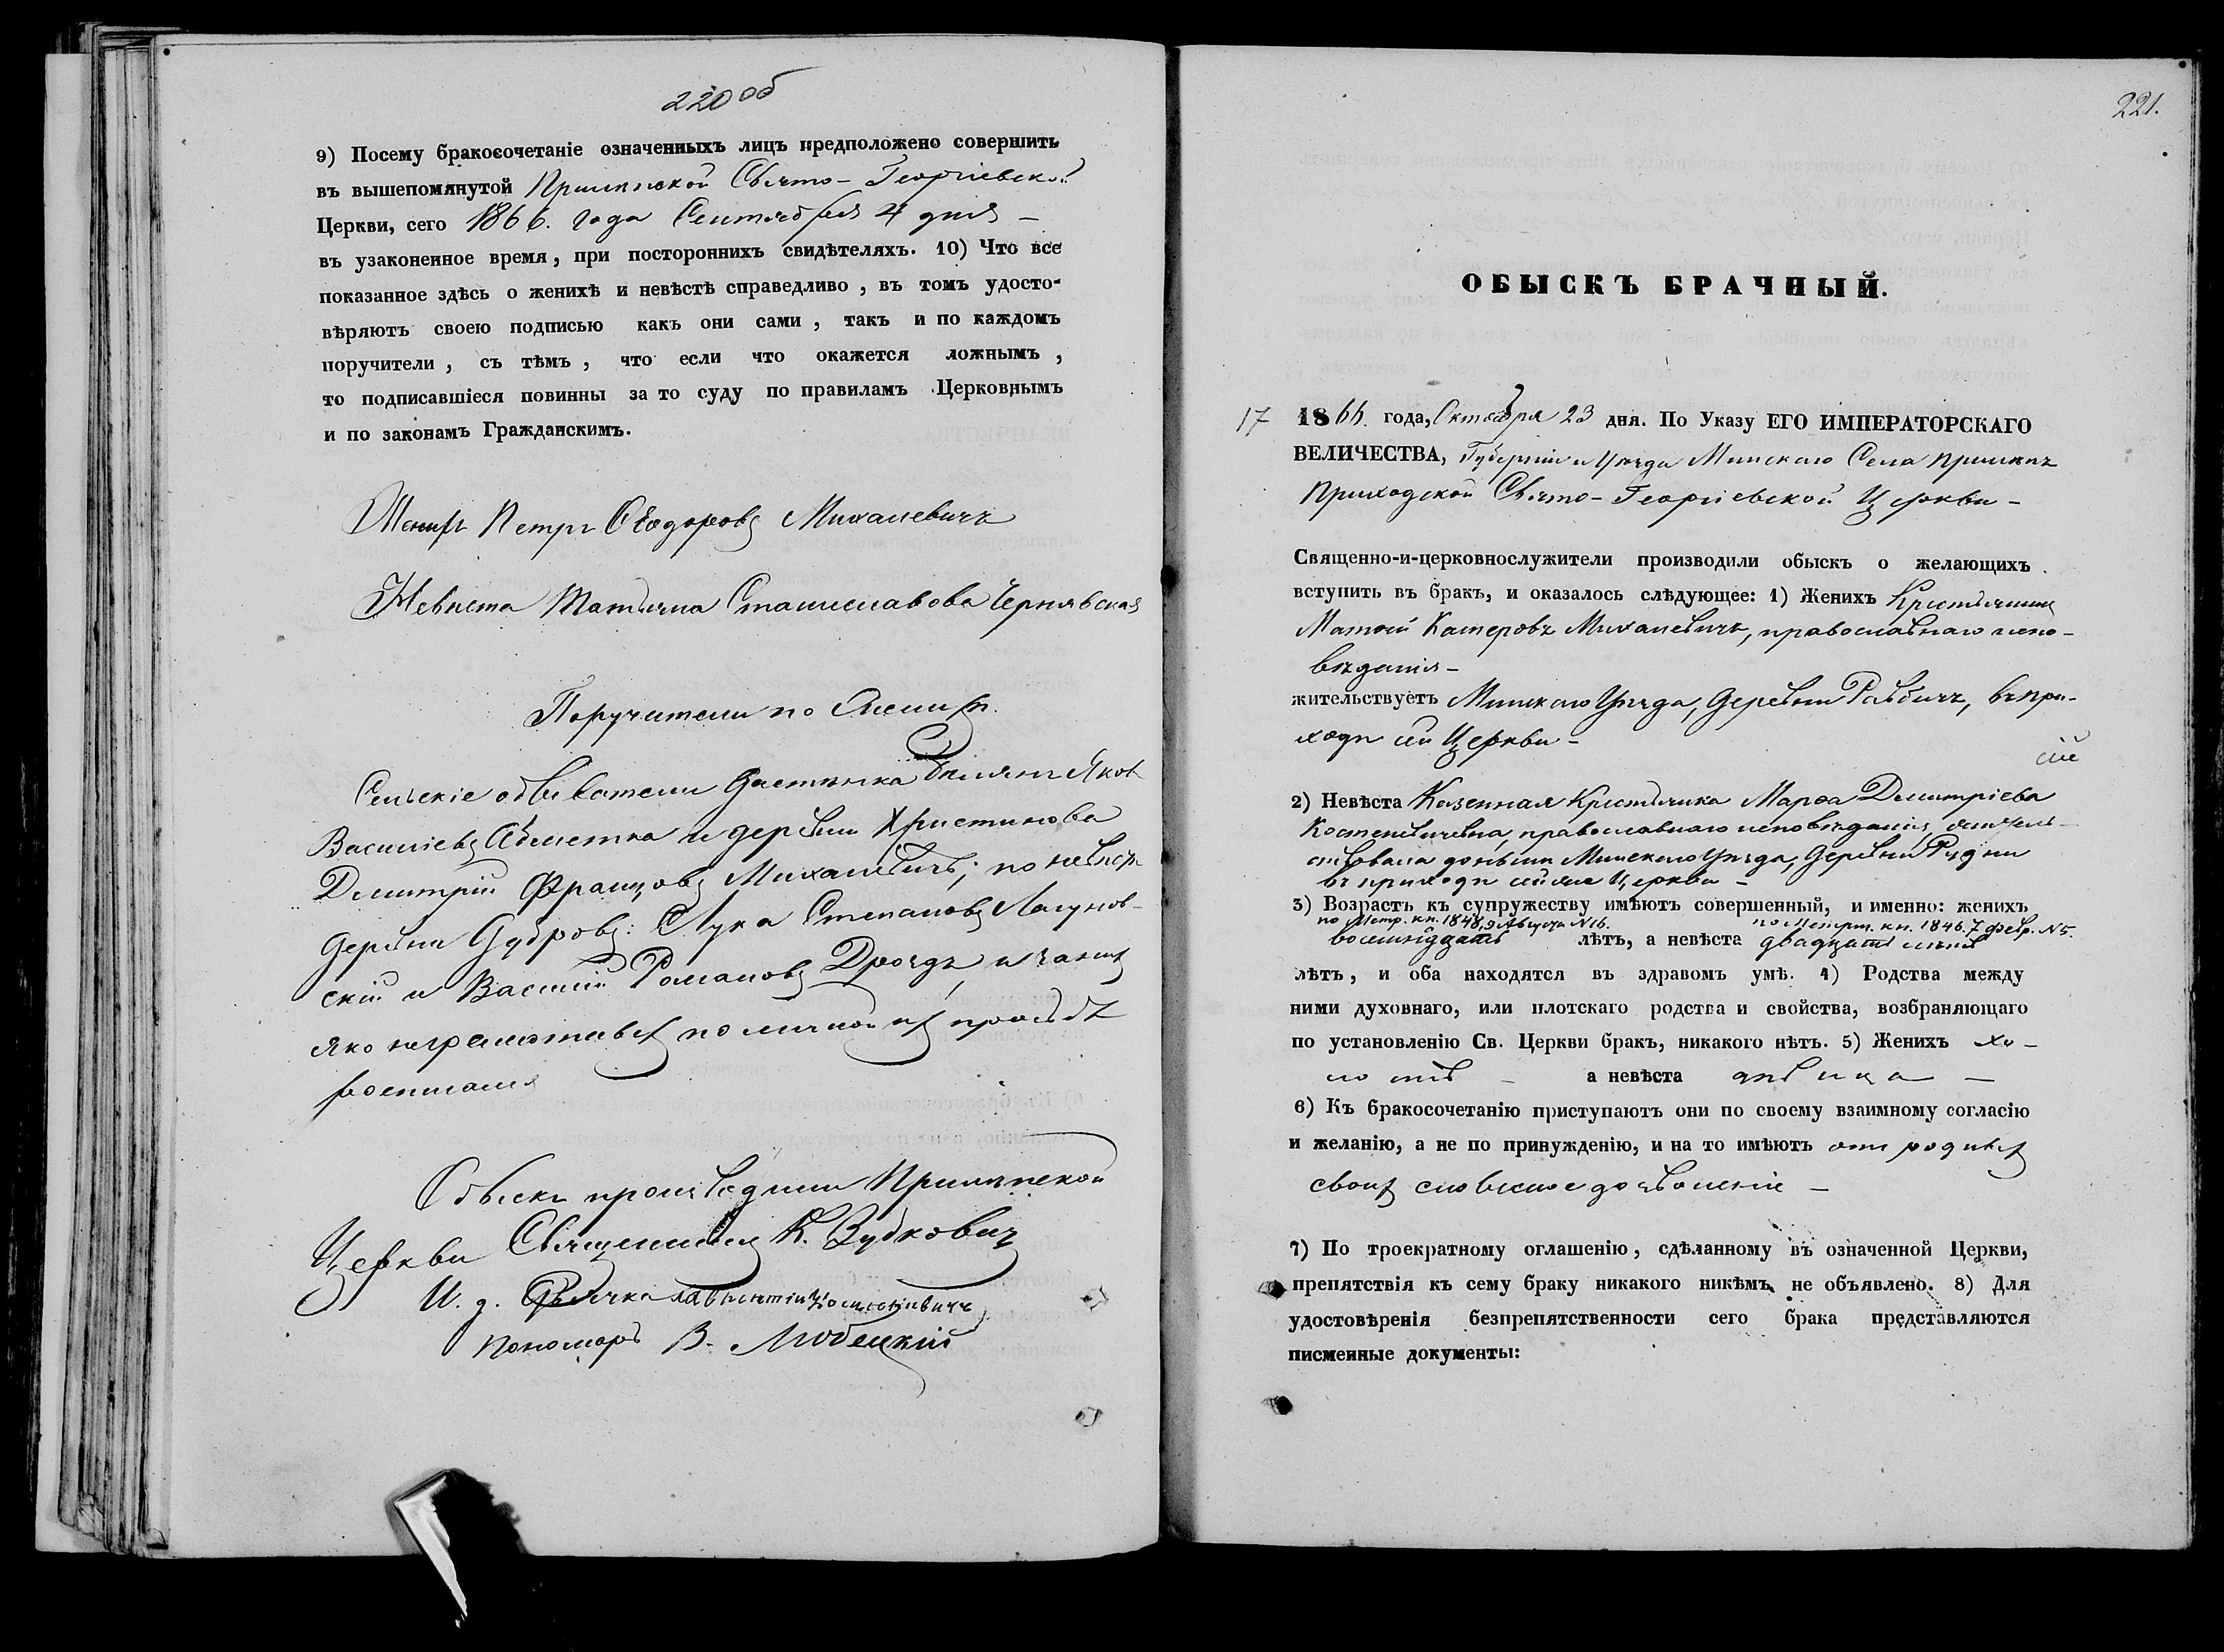 220 об
9) Посему бракосочетаніе означенныхъ лицъ предположено совершить
въ вышепомянутой Прилѣпской Свято-Георгіевской
Церкви, сего 1866. года Сентября 4 дня –
въ узаконенное время, при постороннихъ свидѣтеляхъ. 10) Что все
показанное здѣсь о женихѣ и невѣстѣ справедливо, въ томъ удосто-
вѣряютъ своею подписью какъ они сами, такъ и по каждомъ
поручители, съ тѣмъ, что если что окажется ложнымъ,
то подписавшіеся повинны за то суду по правиламъ Церковнымъ
и по законамъ Гражданскимъ.
Женихъ Петръ Ѳеодоровъ Михалевичъ
Невѣста Татьяна Станиславова Чернявская
Поручители по Женихѣ.
Сельскіе обыватели Яковъ
Василіевъ и деревни Христинова
Димитрій Францовъ Михалевичъ; по невѣстѣ
деревни Дубровъ: Лука Степановъ Лагунов-
скій и Василій Романовъ Дроздъ, и за нихъ
яко неграмотныхъ по личной ихъ прозьбѣ
росписался
Обыскъ производили Прилѣпской
Церкви Священникъ К. Зубковичъ
И. д.
Пономаръ В. Любецкій
221.
ОБЫСКЪ БРАЧНЫЙ.
17 1866. года, Октября 23 дня. По Указу ЕГО ИМПЕРАТОРСКАГО
ВЕЛИЧЕСТВА, Губерніи и Уѣзда Минскаго Села Прилѣпъ
Приходской Свято-Георгіевской Церкви –
Священно-и-церковнослужители производили обыскъ о желающихъ
вступить въ бракъ, и оказалось слѣдующее: 1) Женихъ Крестьянинъ
Матѳій Михалевичъ, православнаго испо-
вѣданія –
жительствуетъ Минскаго Уѣзда, Деревни въ при-
ходѣ сей Церкви –
сіе
2) Невѣста Казенная Крестьянка Марѳа Димитріева
православнаго исповѣданія, жител-
ствовала донынѣ Минскаго Уѣзда, Деревни Рудни
въ приходѣ сей же Церкви –
3) Возрастъ къ супружеству имѣютъ совершенный, и именно: женихъ
по Метр. кн. 1848, 9 Августа N 16. по Метрич. кн. 1846. 7 Февр. N 5.
восемнаддать лѣтъ, а невѣста двадцать
лѣтъ, и оба находятся въ здравомъ умѣ. 4) Родства между
ними духовнаго, или плотскаго родства и свойства, возбраняющаго
по установленію Св. Церкви бракъ, никакого нѣтъ. 5) Женихъ хо-
лостъ – а невѣста дѣвица –
6) Къ бракосочетанію приступаютъ они по своему взаимному согласію
и желанію, а не по принужденію, и на то имѣютъ отъ родныхъ
своихъ словесное дозволеніе –
7) По троекратному оглашенію, сдѣланному въ означенной Церкви,
препятствія къ сему браку никакого никѣмъ не объявлено. 8) Для
удостовѣренія безпрепятственности сего брака представляются
писменные документы: